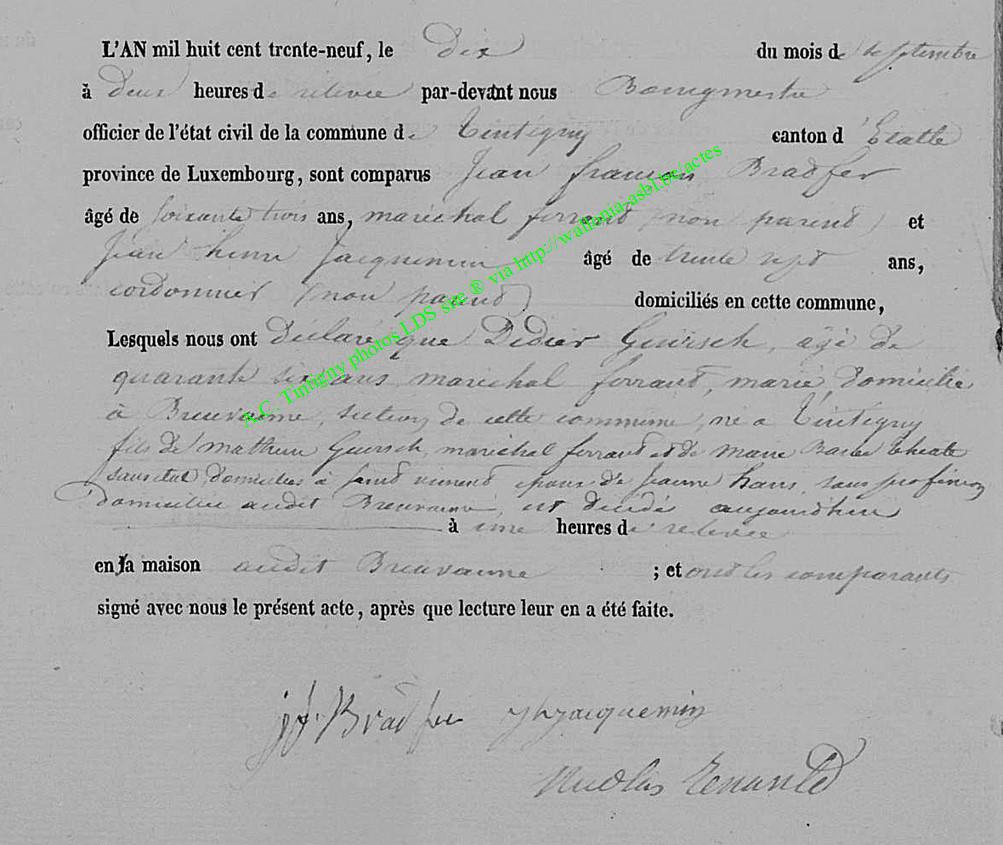 L'AN mil huit cent trente-neuf, le dix du mois de septembre
à deux heures de relevée par-devant nous Bourgmestre
officier de l'état civil de la commune de Tintigny canton d'Etalle
province de Luxembourg, sont comparus Jean françois Bradfer
âgé de soixante trois ans, maréchal ferrant (non parent) et
Jean henri Jacquemin âgé de trente sept ans,
cordonnier (non parent) domiciliés en cette commune,
Lesquels nous ont déclaré que Didier Guirsch agé de
quarante six ans maréchal ferrant, marié, domicilié
à Breuvanne, section de cette commune, né a Tintigny
fils de mathieu Guirsch, maréchal ferrant et de Marie Barbe
domiciliés a saint vincent epoux de Jeanne hans, sans profession
domiciliée audit Breuvanne, est décédé aujourdhui
à une heures de relevée
en sa maison audit Breuvanne ; et ont les comparants
signé avec nous le présent acte, après que lecture leur en a été faite.
jf. Bradfer jh jacquemin
Nicolas
A.C. Tintigny photos LDS see ® via http://wallonia-asbl.be/actes